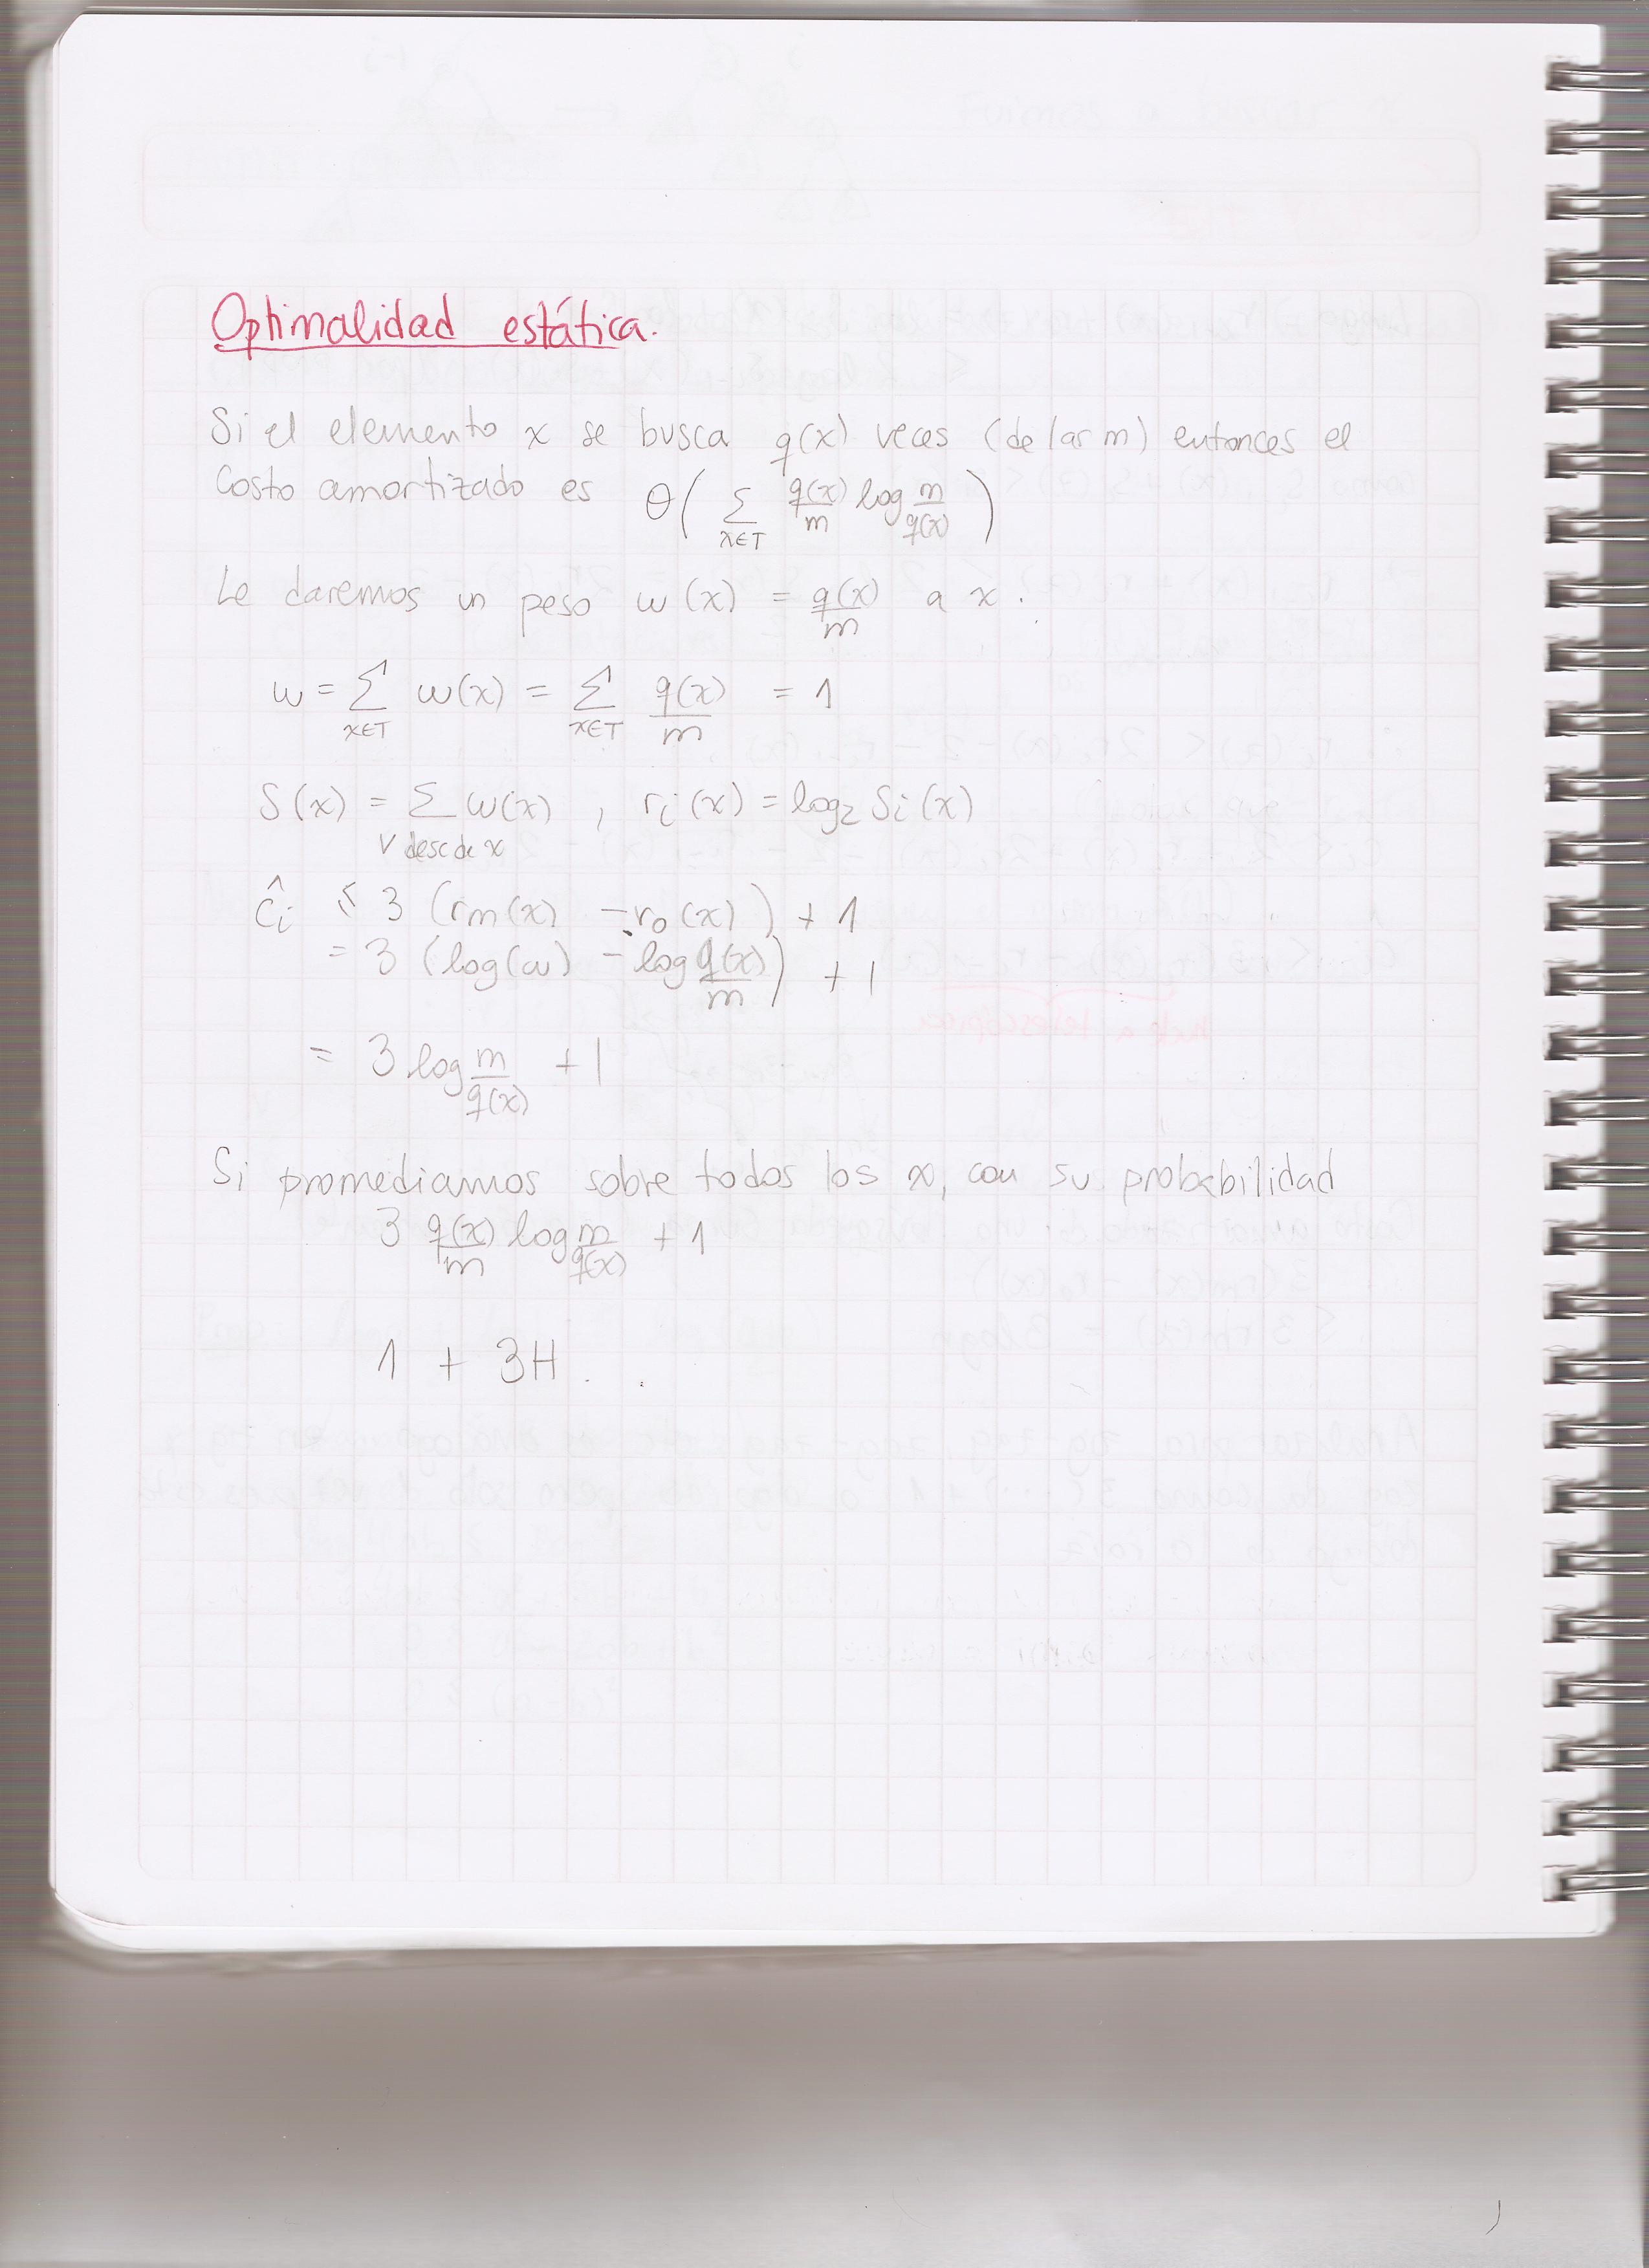 Optimalidad estática.
Si el elemento x se busca q(x) veces (de las m) entonces el
costo amortizado es Θ( Σ_{x∈T} q(x)/m log m/q(x) )
Le daremos un peso w(x) = q(x)/m a x.
w = Σ_{x∈T} w(x) = Σ_{x∈T} q(x)/m = 1
S(x) = Σ_{v desc de x} w(x) , r_i(x) = log_2 S_i(x)
ĉ_i ≤ 3 (r_m(x) - r_0(x)) + 1
= 3 (log(w) - log q(x)/m) + 1
= 3 log m/q(x) + 1
Si promediamos sobre todos los x, con su probabilidad
3 q(x)/m log m/q(x) + 1
1 + 3H.